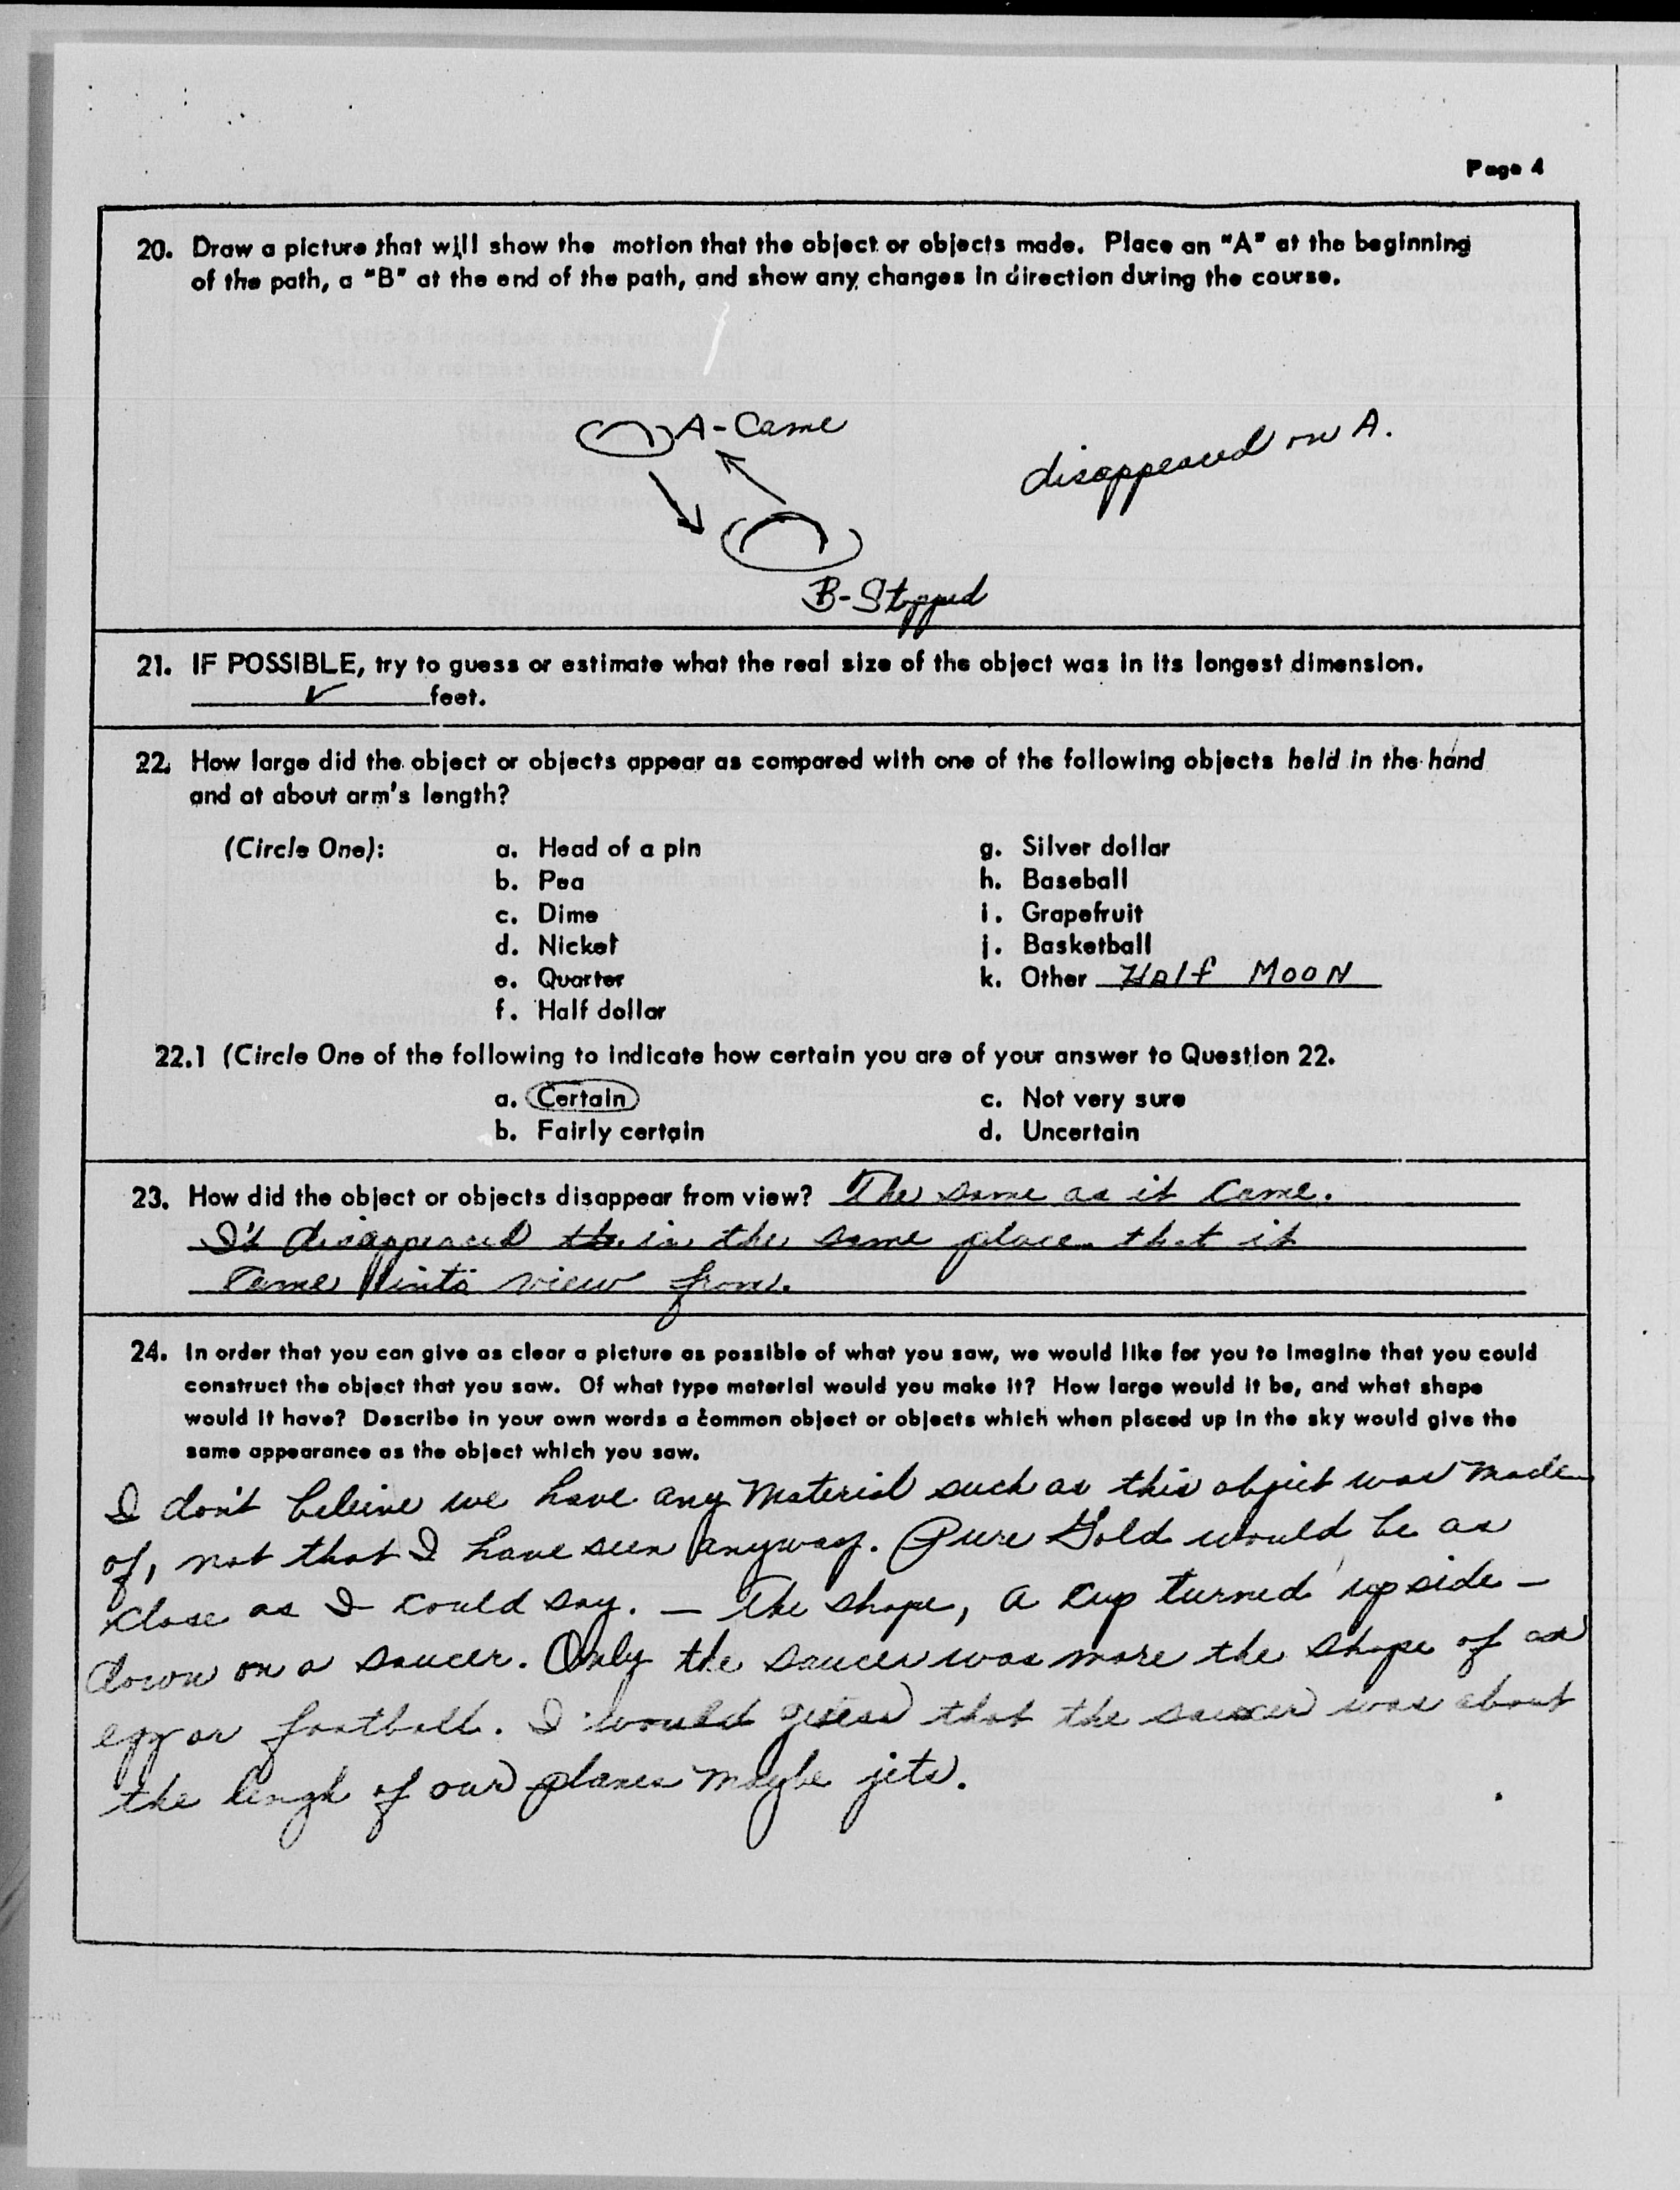 Page 4
20. Draw a picture that will show the motion that the object or objects made. Place an "A" at the beginning
of the path, a "B" at the end of the path, and show any changes in direction during the course.
A-Came
disappeared on A.
B-Stopped
21. IF POSSIBLE, try to guess or estimate what the real size of the object was in its longest dimension.
✓ feet.
22. How large did the object or objects appear as compared with one of the following objects held in the hand
and at about arm's length?
(Circle One): a. Head of a pin g. Silver dollar
b. Pea h. Baseball
c. Dime i. Grapefruit
d. Nickel j. Basketball
e. Quarter k. Other Half MOON
f. Half dollar
22.1 (Circle One of the following to indicate how certain you are of your answer to Question 22.
a. Certain c. Not very sure
b. Fairly certain d. Uncertain
23. How did the object or objects disappear from view? The same as it came.
It disappeared in the same place that it
came into view from.
24. In order that you can give as clear a picture as possible of what you saw, we would like for you to imagine that you could
construct the object that you saw. Of what type material would you make it? How large would it be, and what shape
would it have? Describe in your own words a common object or objects which when placed up in the sky would give the
same appearance as the object which you saw.
I don't beleive we have any Material such as this object was made
of, not that I have seen anyway. Pure Gold would be as
close as I could say. — The shape, a cup turned upside -
down on a saucer. Only the saucer was more the shape of an
egg or football. I would guess that the saucer was about
the lengh of our planes maybe jets.